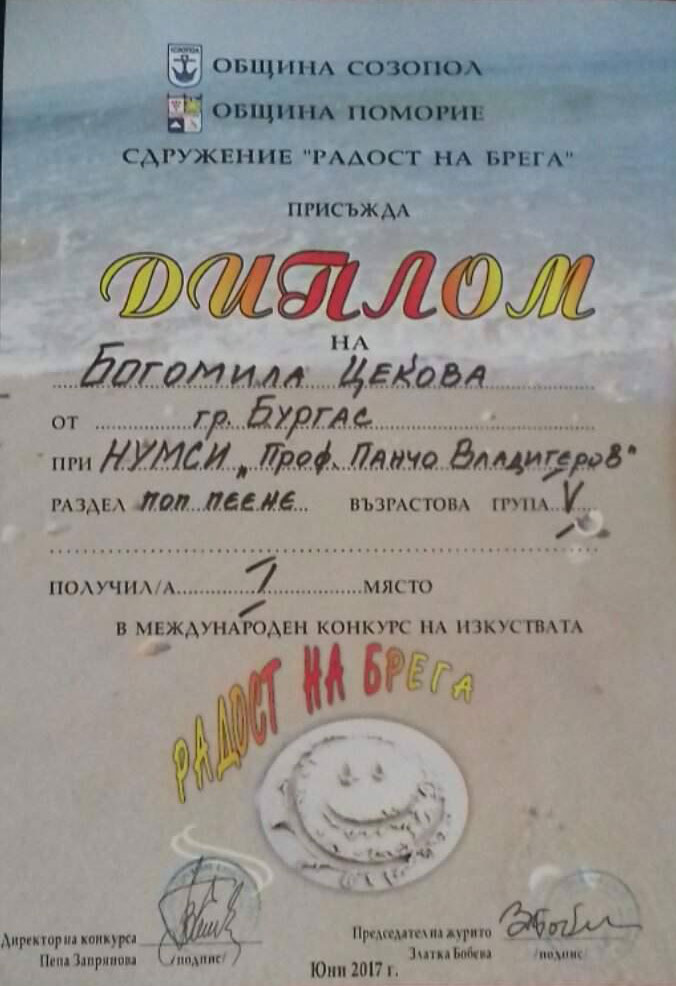 СОЗОПОЛ
ОБЩИНА СОЗОПОЛ
ОБЩИНА ПОМОРИЕ
СДРУЖЕНИЕ "РАДОСТ НА БРЕГА"
ПРИСЪЖДА
ДИПЛОМ
НА
БОГОМИЛА ЦЕКОВА
ОТ гр. БУРГАС
ПРИ НУМСИ „Проф. ПАНЧО ВЛАДИГЕРОВ"
РАЗДЕЛ ПОП ПЕЕНЕ ВЪЗРАСТОВА ГРУПА V
ПОЛУЧИЛ/А I МЯСТО
В МЕЖДУНАРОДЕН КОНКУРС НА ИЗКУСТВАТА
РАДОСТ НА БРЕГА
Директор на конкурса
Пепа Запрянова /подпис/
Председател на журито
Златка Бобева /подпис/
Юни 2017 г.